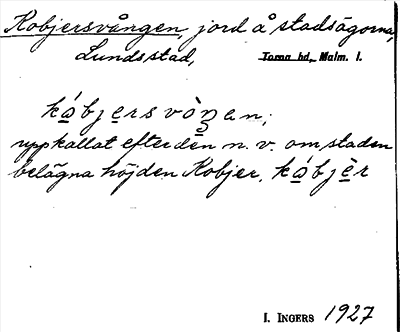 Kobjersvången, jord å stadsägorna,
Lunds stad, Torna hd, Malm. l.
kǻbjersvòŋan,
uppkallat efter den n. v. om staden
belägna höjden Kobjer, kǻbjèr
I. INGERS 1927